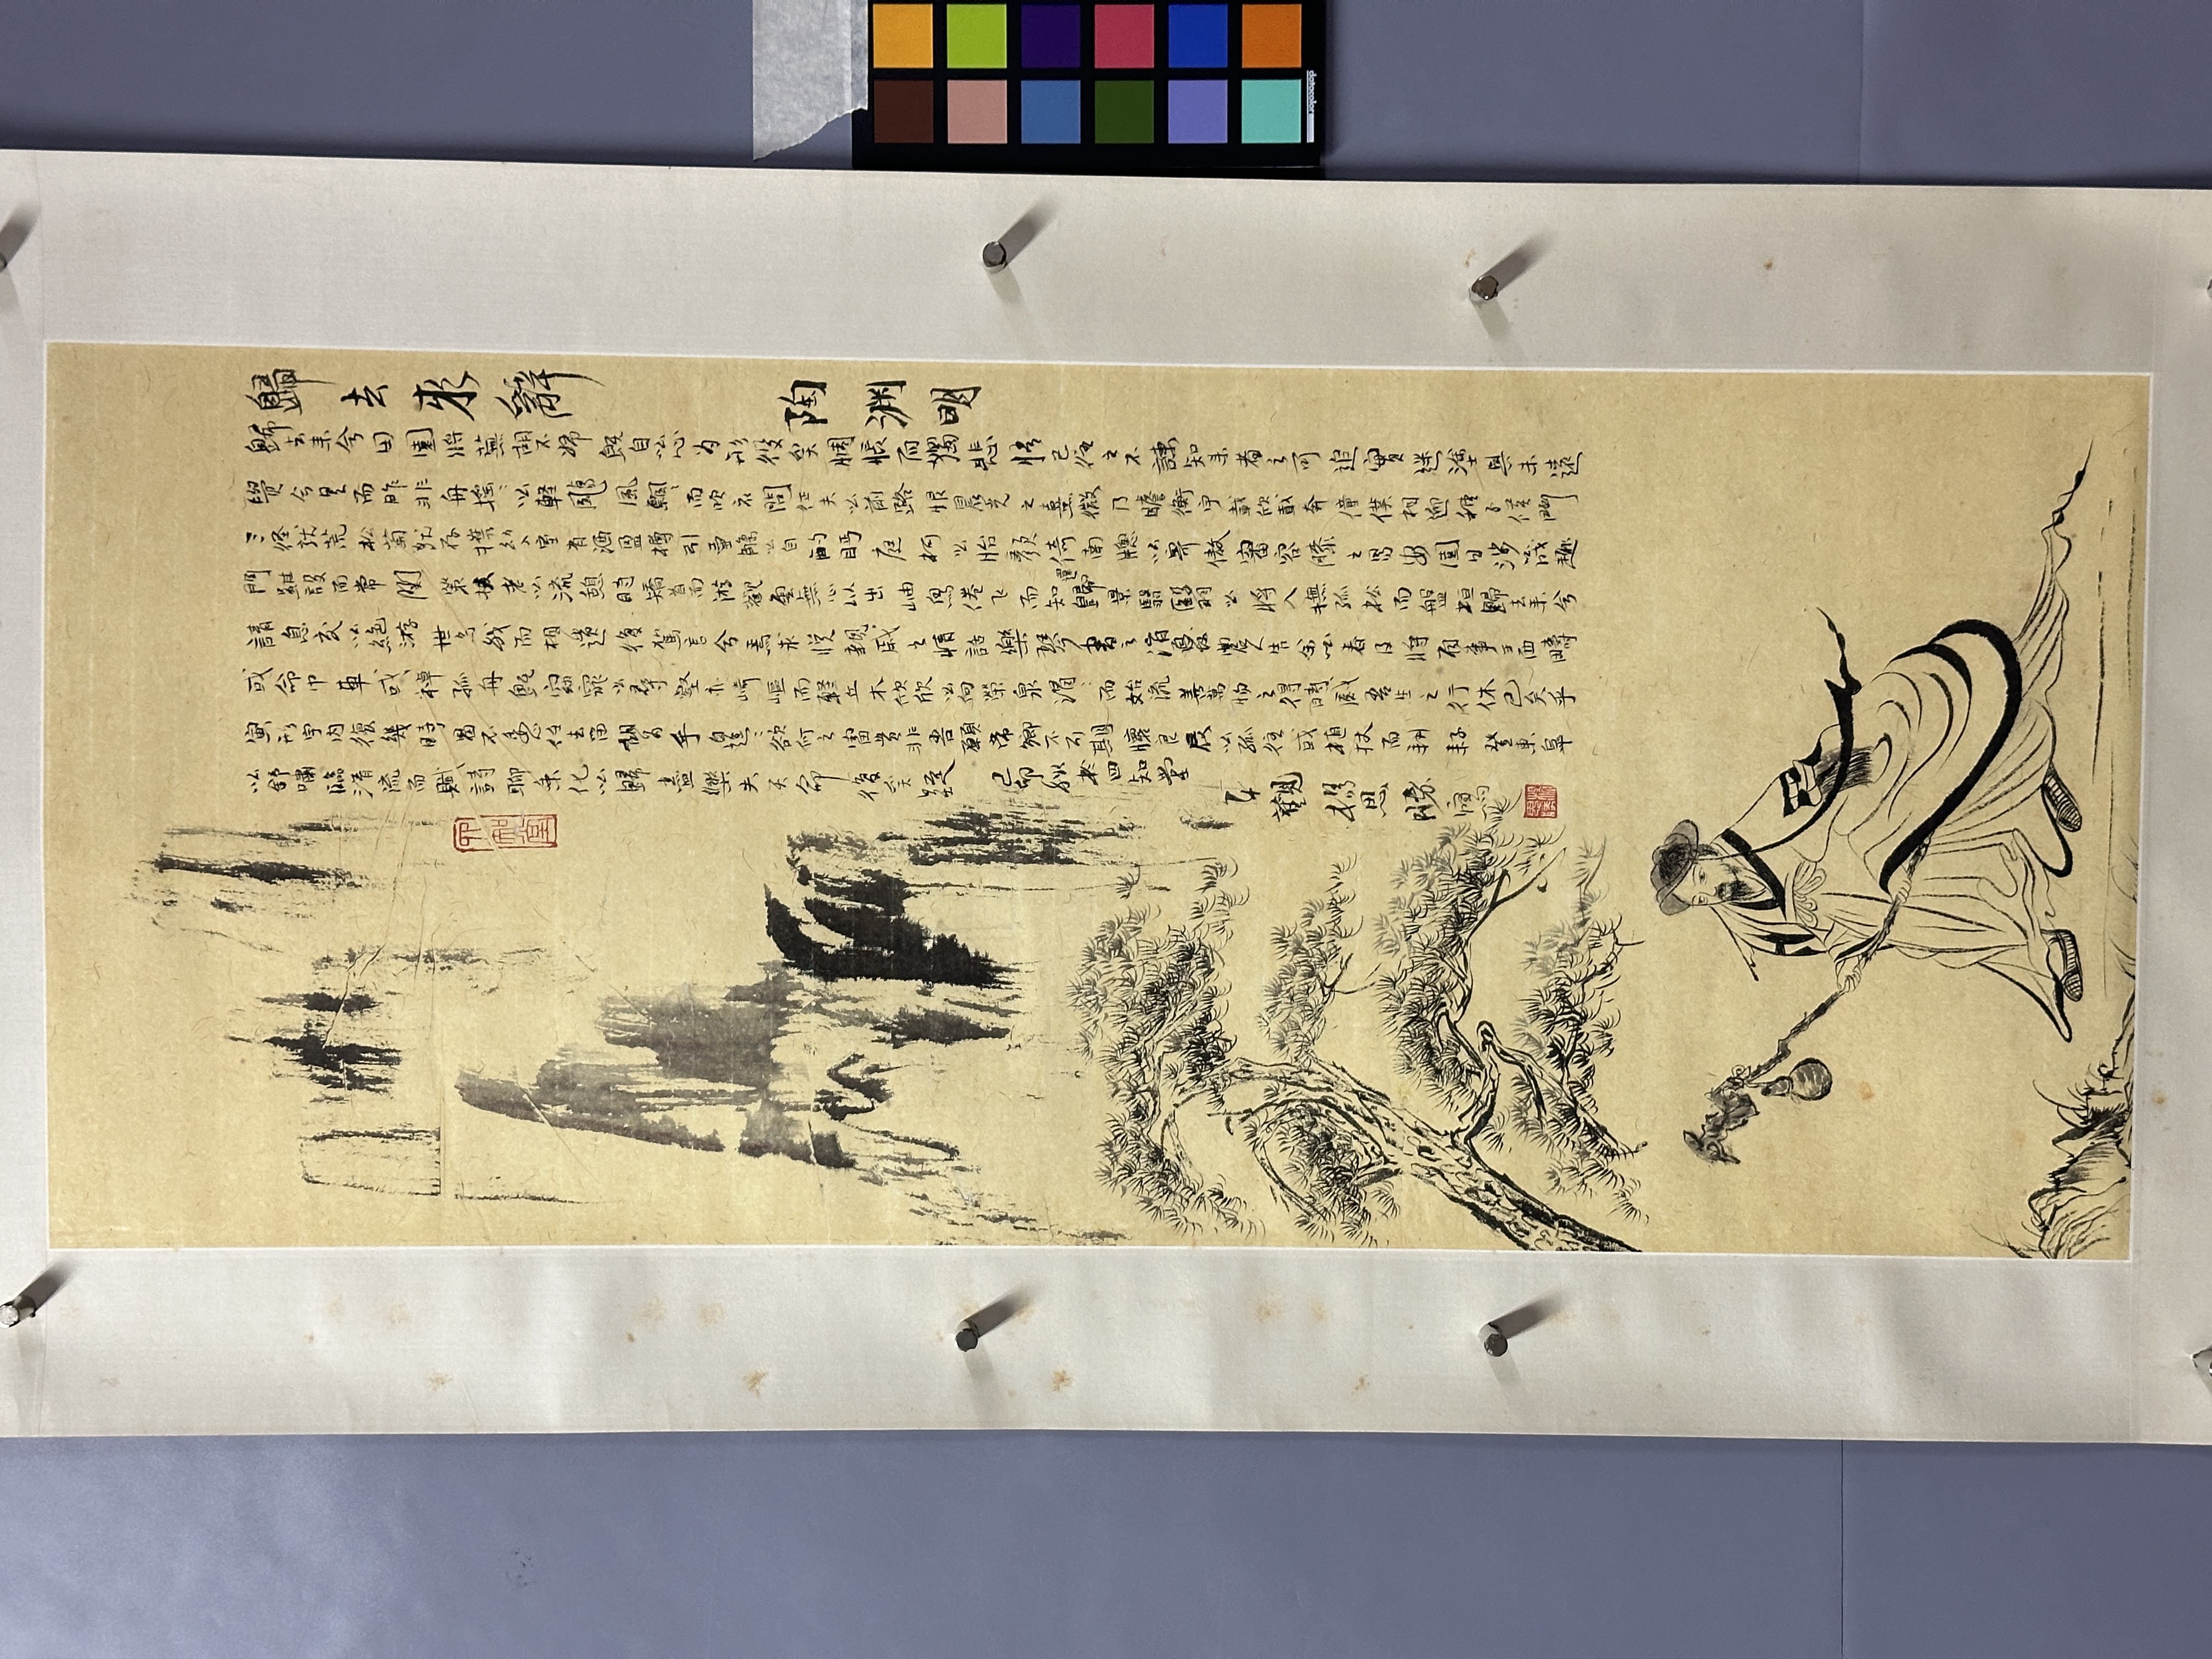 歸去來辭 陶淵明
歸去来兮田園將蕪胡不歸既自以心為形役奚惆悵而獨悲悟已往之不諫知来者之可追實迷塗其未遠
覺今是而昨非舟搖〻以輕颺風飄〻而吹衣問征夫以前路恨晨光之熹微乃瞻衡宇載欣載奔僮僕相迎稚子候門
三径就荒松菊猶存携幼入室有酒盈樽引壺觴以自酌眄庭柯以怡顏倚南牕以寄傲審容膝之易安園日涉以成趣
門雖設而常関策扶老以流憩時矯首而遊觀雲無心以出岫鳥倦飞而知歸還景翳翳以將入撫孤松而盤桓歸去来兮
請息交以絕游世與我而相遺復駕言兮焉求悅親戚之情話樂琴書之消憂農人告余以春及將有事于西疇
或命巾車或棹孤舟既窈窕以尋壑亦崎嶇而經丘木欣欣以向榮泉涓〻而始流善萬物之得時感吾生之行休已矣乎
寓形宇内復幾時曷不委心任去留胡為乎遑〻欲何之富貴非吾願帝鄉不可期懷良辰以孤往或植杖而耕耔登東皋
以舒嘯臨清流而賦詩聊乘化以歸盡樂夫天命復奚疑 己卯秋於四知堂
觀 楊思勝 寫
datacolor